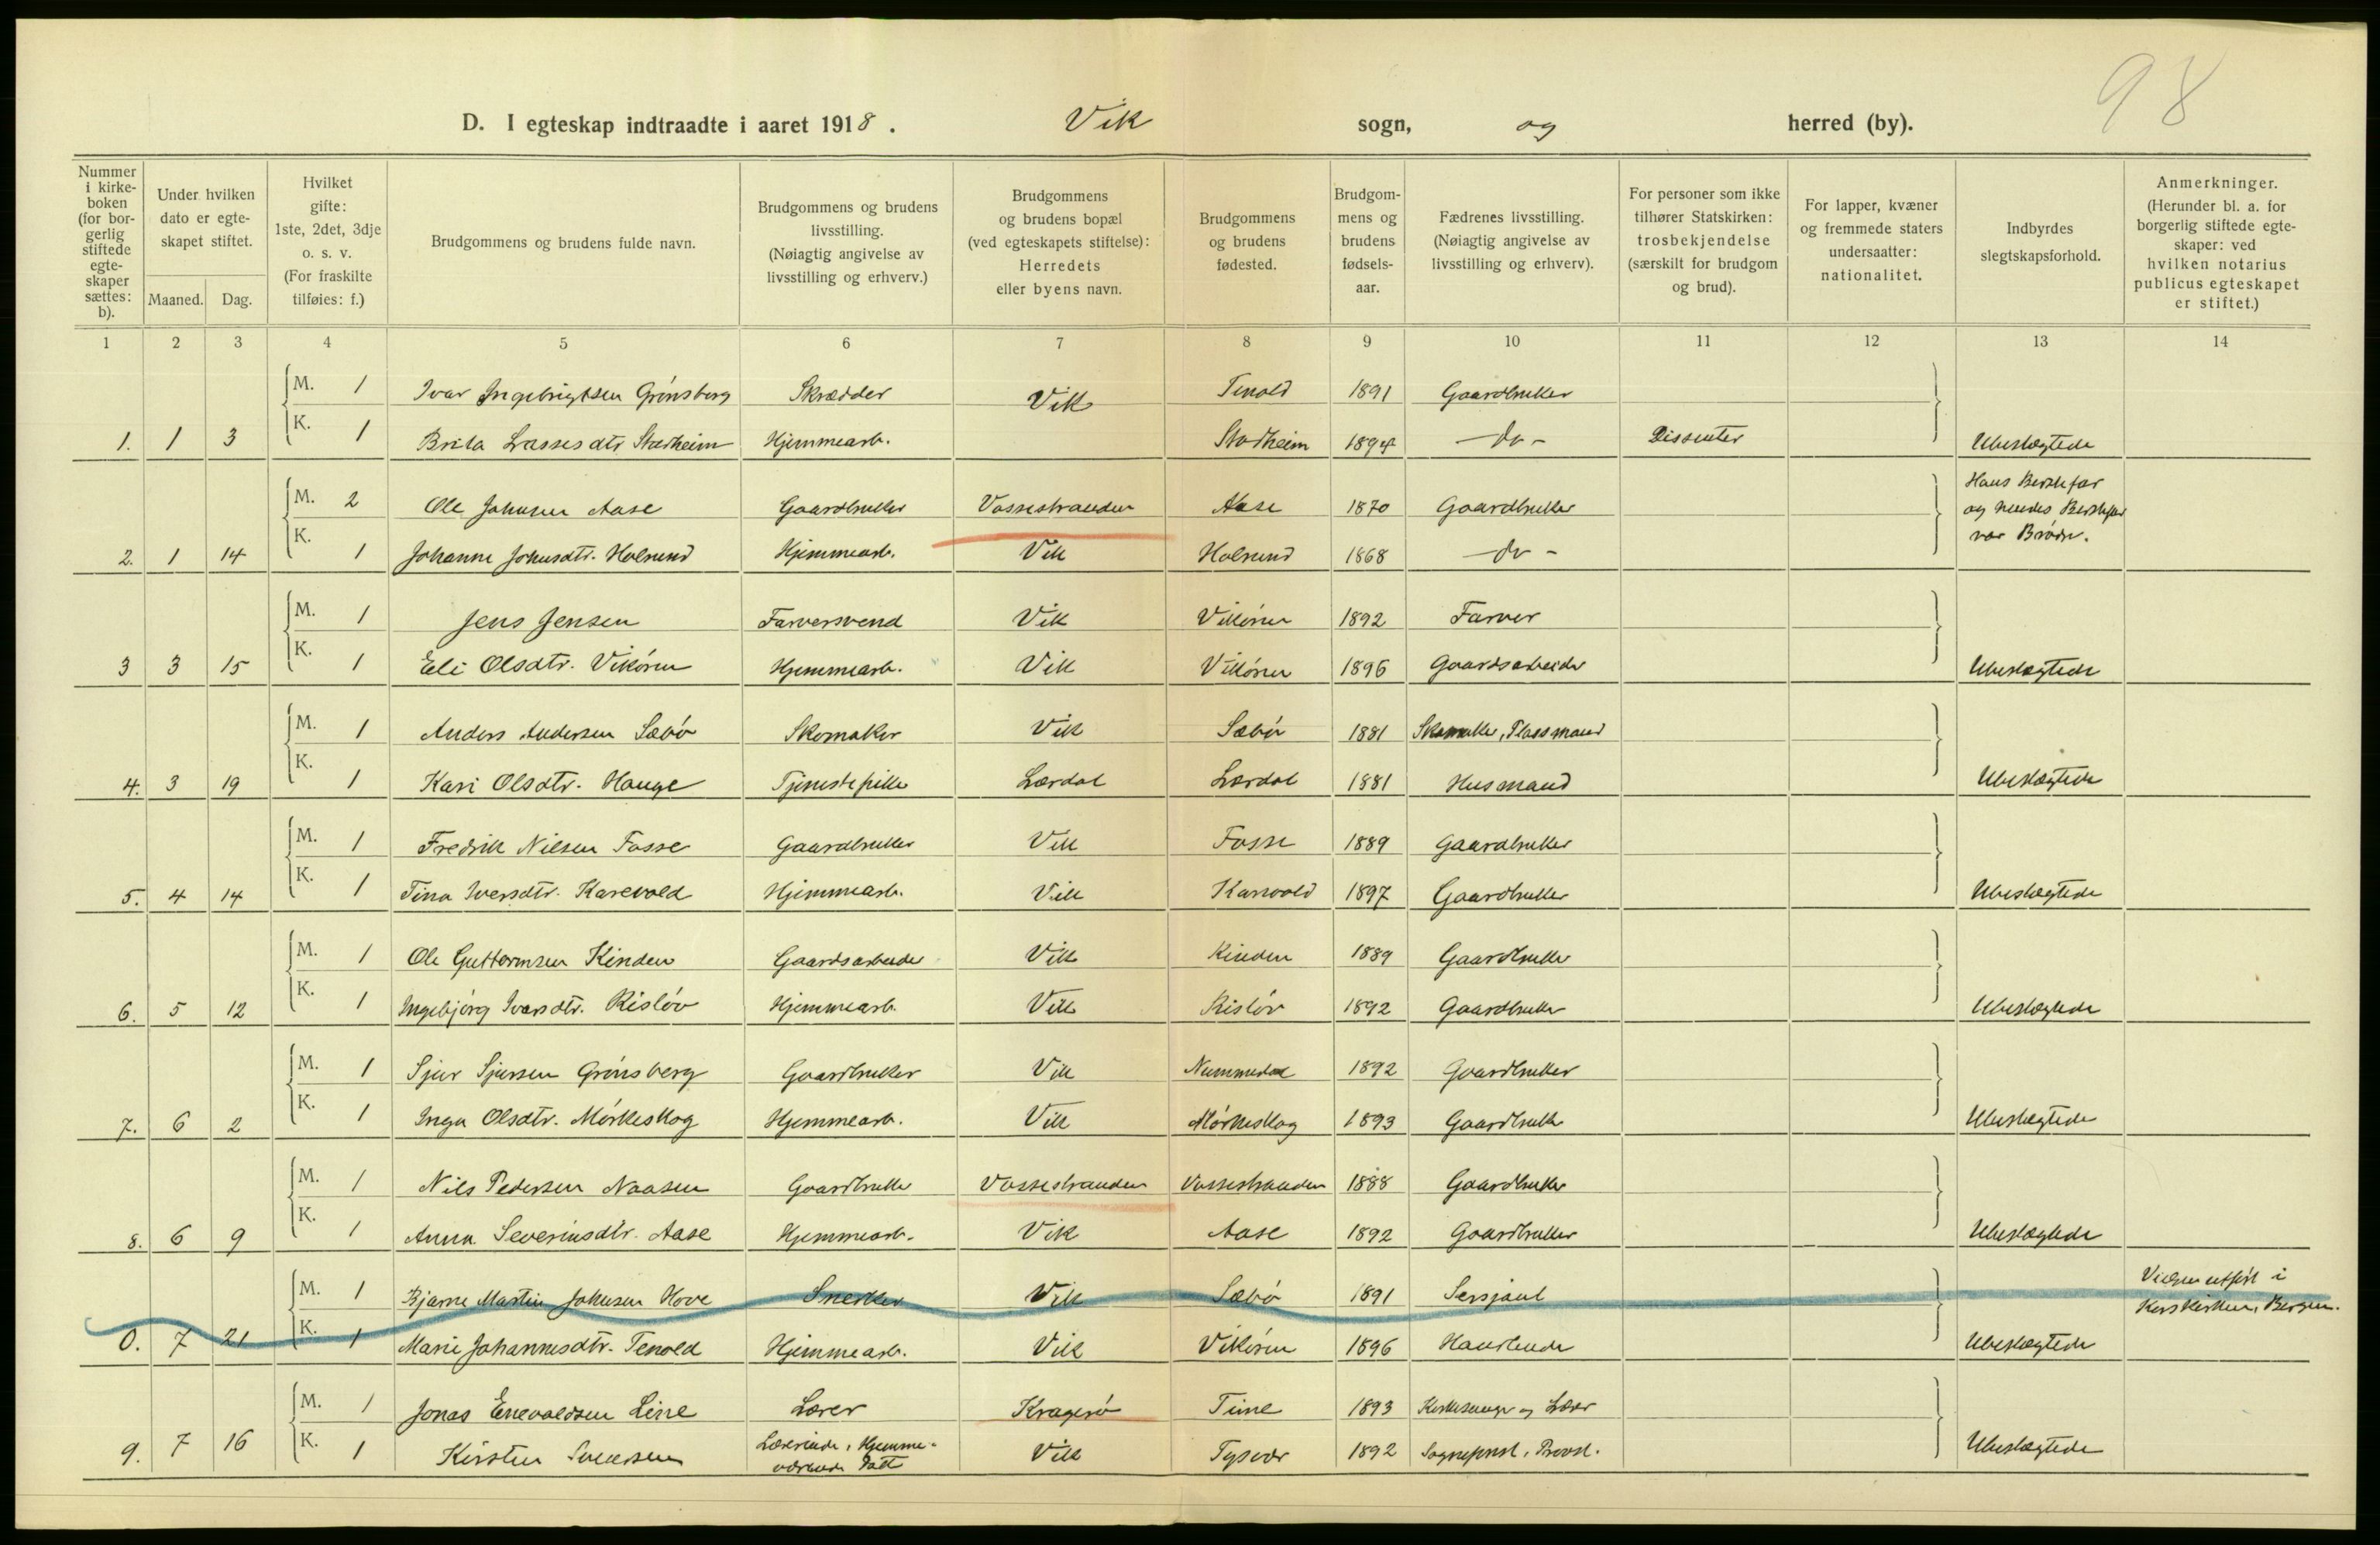 98
D. I egteskap indtraadte i aaret 1918. Vik sogn, og herred (by).
Nummer i kirke-boken (for bor-gerlig stiftede egte-skaper sættes: b).
Under hvilken dato er egte-skapet stiftet.
Maaned. Dag.
Hvilket gifte: 1ste, 2det, 3dje o. s. v. (For fraskilte tilføies: f.)
Brudgommens og brudens fulde navn.
Brudgommens og brudens livsstilling. (Nøiagtig angivelse av livsstilling og erhverv.)
Brudgommens og brudens bopæl (ved egteskapets stiftelse): Herredets eller byens navn.
Brudgommens og brudens fødested.
Brudgom-mens og brudens fødsels-aar.
Fædrenes livsstilling. (Nøiagtig angivelse av livsstilling og erhverv).
For personer som ikke tilhører Statskirken: trosbekjendelse (særskilt for brudgom og brud).
For lapper, kvæner og fremmede staters undersaatter: nationalitet.
Indbyrdes slegtskapsforhold.
Anmerkninger. (Herunder bl. a. for borgerlig stiftede egte-skaper: ved hvilken notarius publicus egteskapet er stiftet.)
1 2 3 4 5 6 7 8 9 10 11 12 13 14
M. 1 Ivar Ingebrigtsen Grönsberg Skrædder Vik Tenold 1891 Gaardbruker
1. 1 3 K. 1 Brita Lassesdtr Stadheim Hjemmearb. Stadheim 1894 - do - Dissenter Ubeslægtede
M. 2 Ole Johnsen Aase Gaardbruker Vossestranden Aase 1870 Gaardbruker Hans Bestefar og hendes Bestefar var Brödr.
2. 1 14 K. 1 Johanne Johnsdtr. Holsund Hjemmearb. Vik Holsund 1868 - do -
M. 1 Jens Jensen Farversvend Vik Vikören 1892 Farver
3 3 15 K. 1 Eli Olsdtr. Vikören Hjemmearb. Vik Vikören 1896 Gaardsarbeider Ubeslægtede
M. 1 Anders Andersen Sæbö Skomaker Vik Sæbö 1881 Skomaker, Plassmand
4. 3 19 K. 1 Kari Olsdtr. Hauge Tjenestepike Lærdal Lærdal 1881 Husmand Ubeslægtede
M. 1 Fredrik Nilsen Fosse Gaardbruker Vik Fosse 1889 Gaardbruker
5. 4 14 K. 1 Tina Iversdtr. Karevold Hjemmearb. Vik Karevold 1897 Gaardbruker Ubeslægtede
M. 1 Ole Guttormsen Hinden Gaardsarbeider Vik Hinden 1889 Gaardbruker
6. 5 12 K. 1 Ingebjörg Ivarsdtr. Rislöv Hjemmearb. Vik Rislöv 1892 Gaardbruker Ubeslægtede
M. 1 Sjur Sjursen Grönsberg Gaardbruker Vik Nummedal 1892 Gaardbruker
7. 6 2 K. 1 Inga Olsdtr. Mörkeskog Hjemmearb. Vik Mörkeskog 1893 Gaardbruker Ubeslægtede
M. 1 Nils Pedersen Naasen Gaardbruker Vossestranden Vossestranden 1888 Gaardbruker
8. 6 9 K. 1 Anna Severinsdtr. Aase Hjemmearb. Vik Aase 1892 Gaardbruker Ubeslægtede
M. 1 Bjarne Martin Johnsen Hove Snekker Vik Sæbö 1891 Sersjant Vielsen utfört i Korskirken, Bergen.
0. 7 21 K. 1 Marie Johannesdtr. Tenold Hjemmearb. Vik Vikören 1896 Handlende Ubeslægtede
M. 1 Jonas Enevaldsen Line Lærer Kragerö Time 1893 Kirkesanger og Lærer
9. 7 16 K. 1 Kirsten Lærerinde, Hjemme-værende Datt Vik Tysvær 1892 Sogneprest, Provst. Ubeslægtede